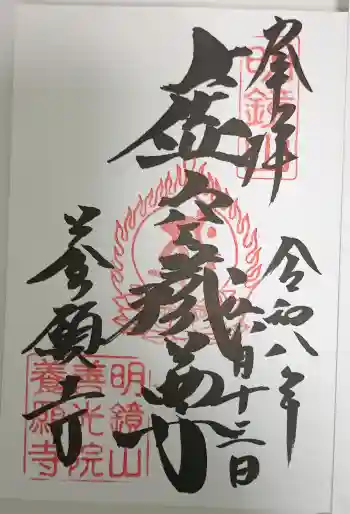 奉拝
明鏡山
令和八年
月十三日
虚空蔵尊
養願寺
明鏡山
善光院
養願寺